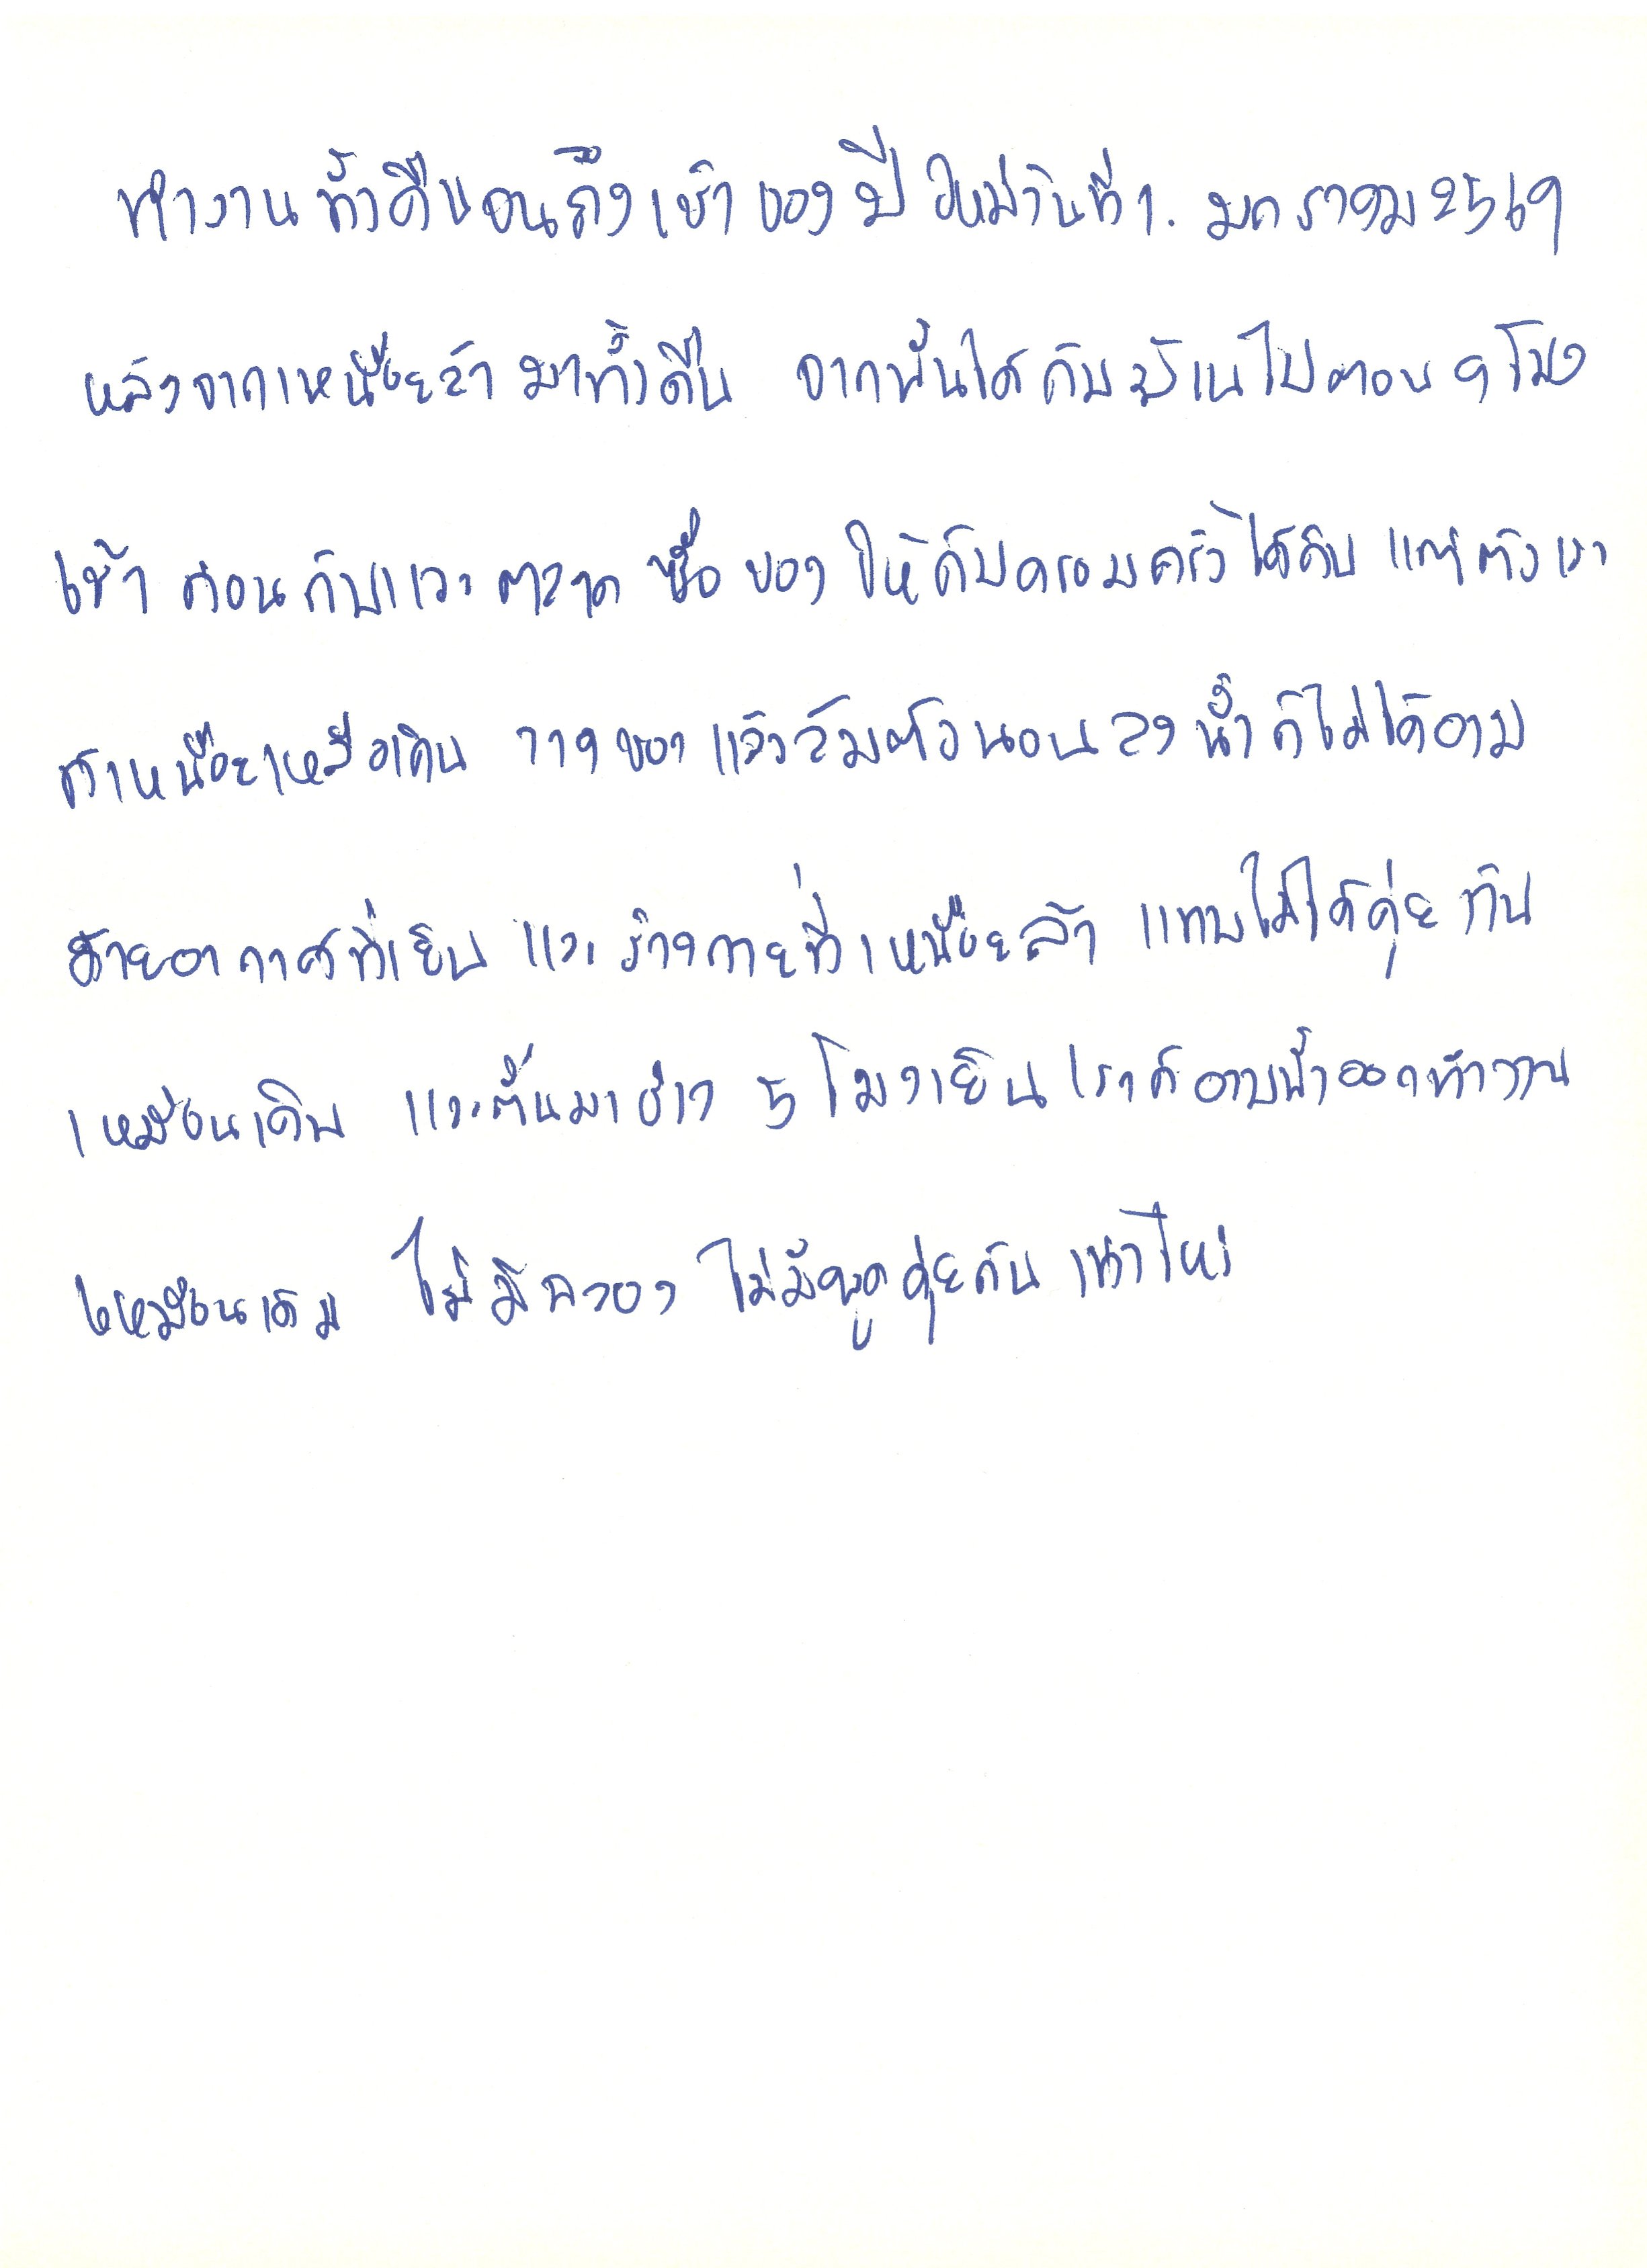 ทำงานทั้งคืนจนถึงเช้าของปีใหม่วันที่ 1. มกราคม 2569
หลังจากเหนื่อยล้ามาทั้งคืน จากนั้นได้กับบ้านไปตอน 9 โมง
เช้า ก่อนกับแวะตลาด ซื้อของให้กับครอบครัวได้กิน แต่ตัวเรา
ก็เหนื่อยเหลือเกิน วางของแล้วล้มตัวนอนลง น้ำก็ไม่ได้อาบ
ด้วยอากาศที่เย็น และร่างกายที่เหนื่อยล้า แทบไม่ได้คุ่ยกัน
เหมือนเดิม และตื่นมาช่วง 5 โมงเย็น เราก็อาบน้ำออกทำงาน
เหมือนเดิม ไม่มีฉลอง ไม่มีพูดคุ่ยกันเท่าไหร่